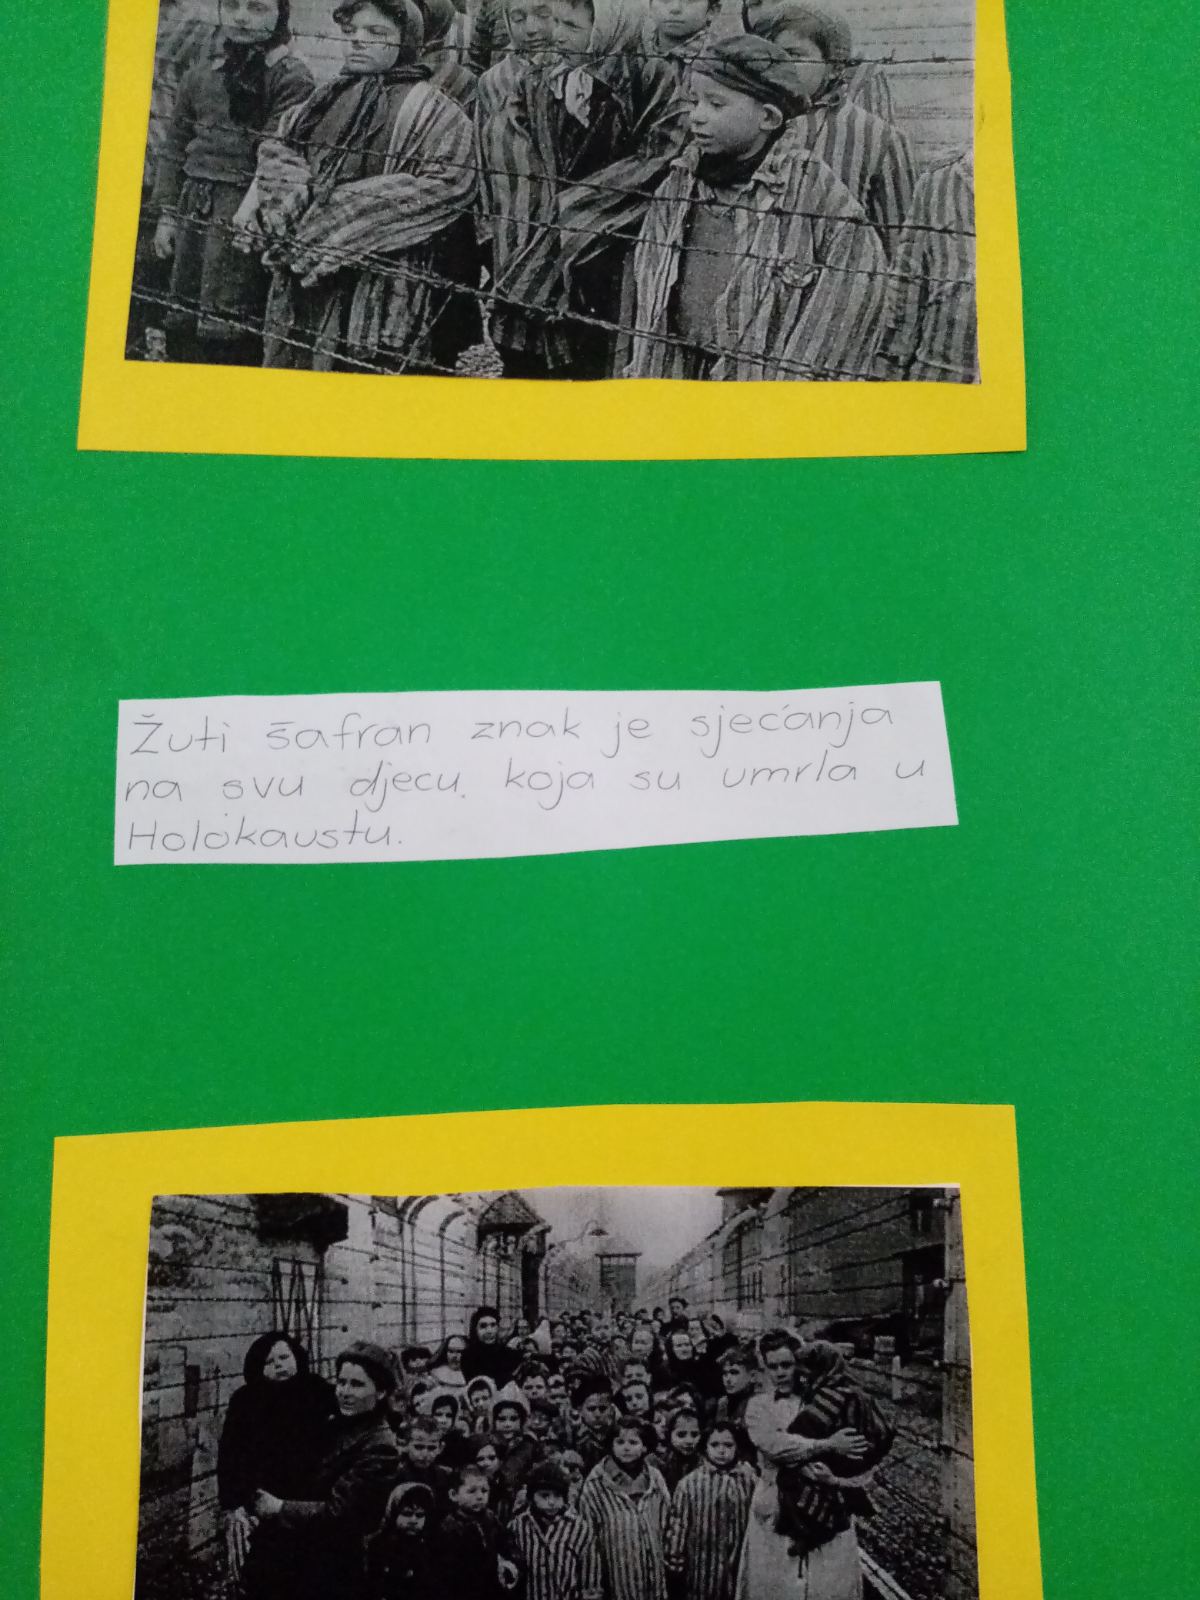 Žuti šafran znak je sjećanja
na svu djecu koja su umrla u
Holokaustu.